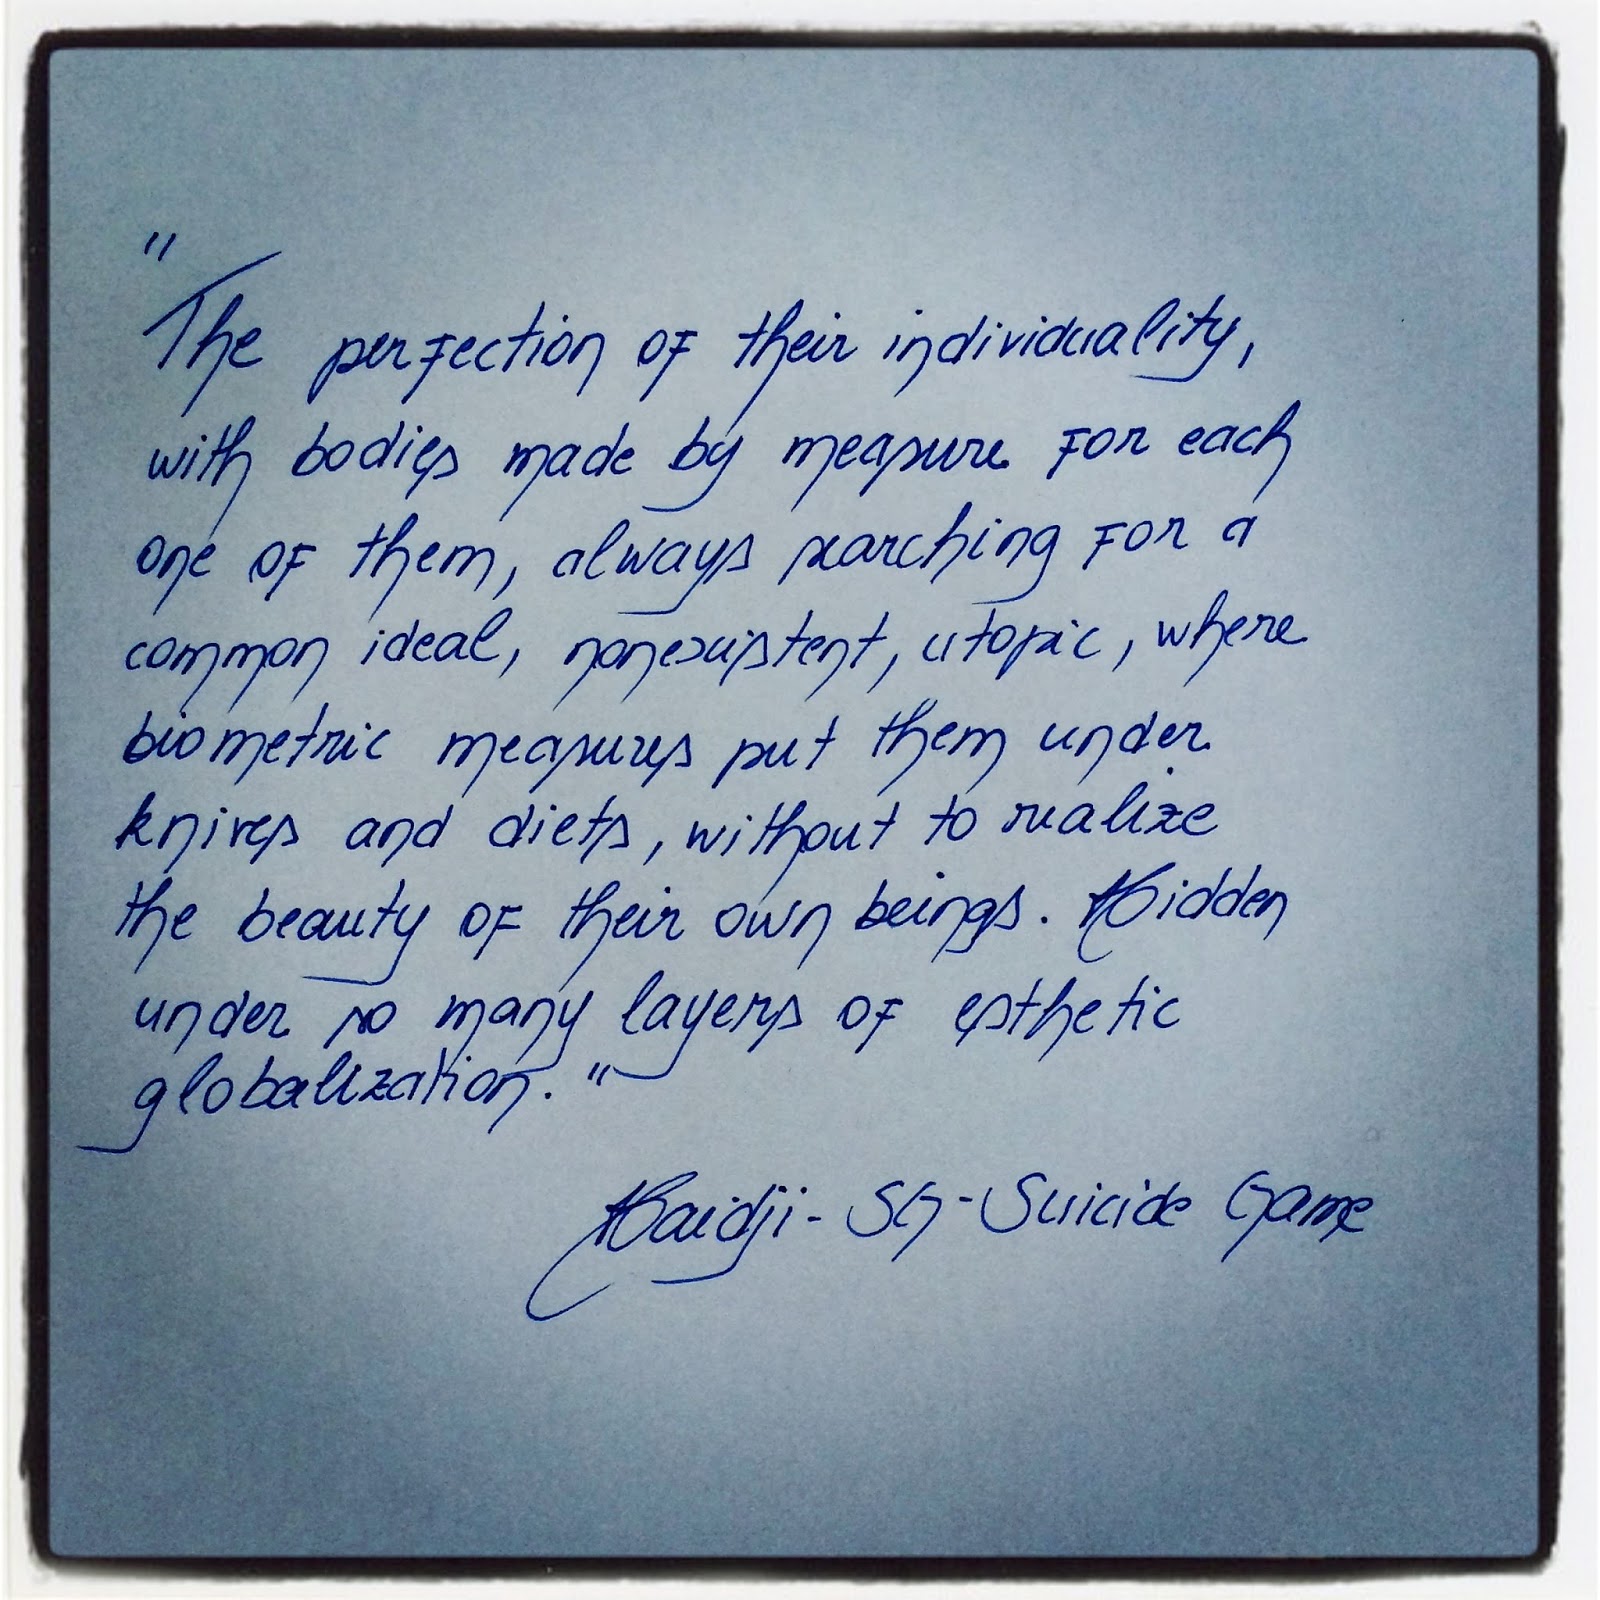 "
The perfection of their individuality,
with bodies made by measure for each
one of them, always searching for a
common ideal, nonexistent, utopic, where
biometric measures put them under
knives and diets, without to realize
the beauty of their own beings. Hidden
under so many layers of esthetic
globalization."
Haidji - SG - Suicide Game